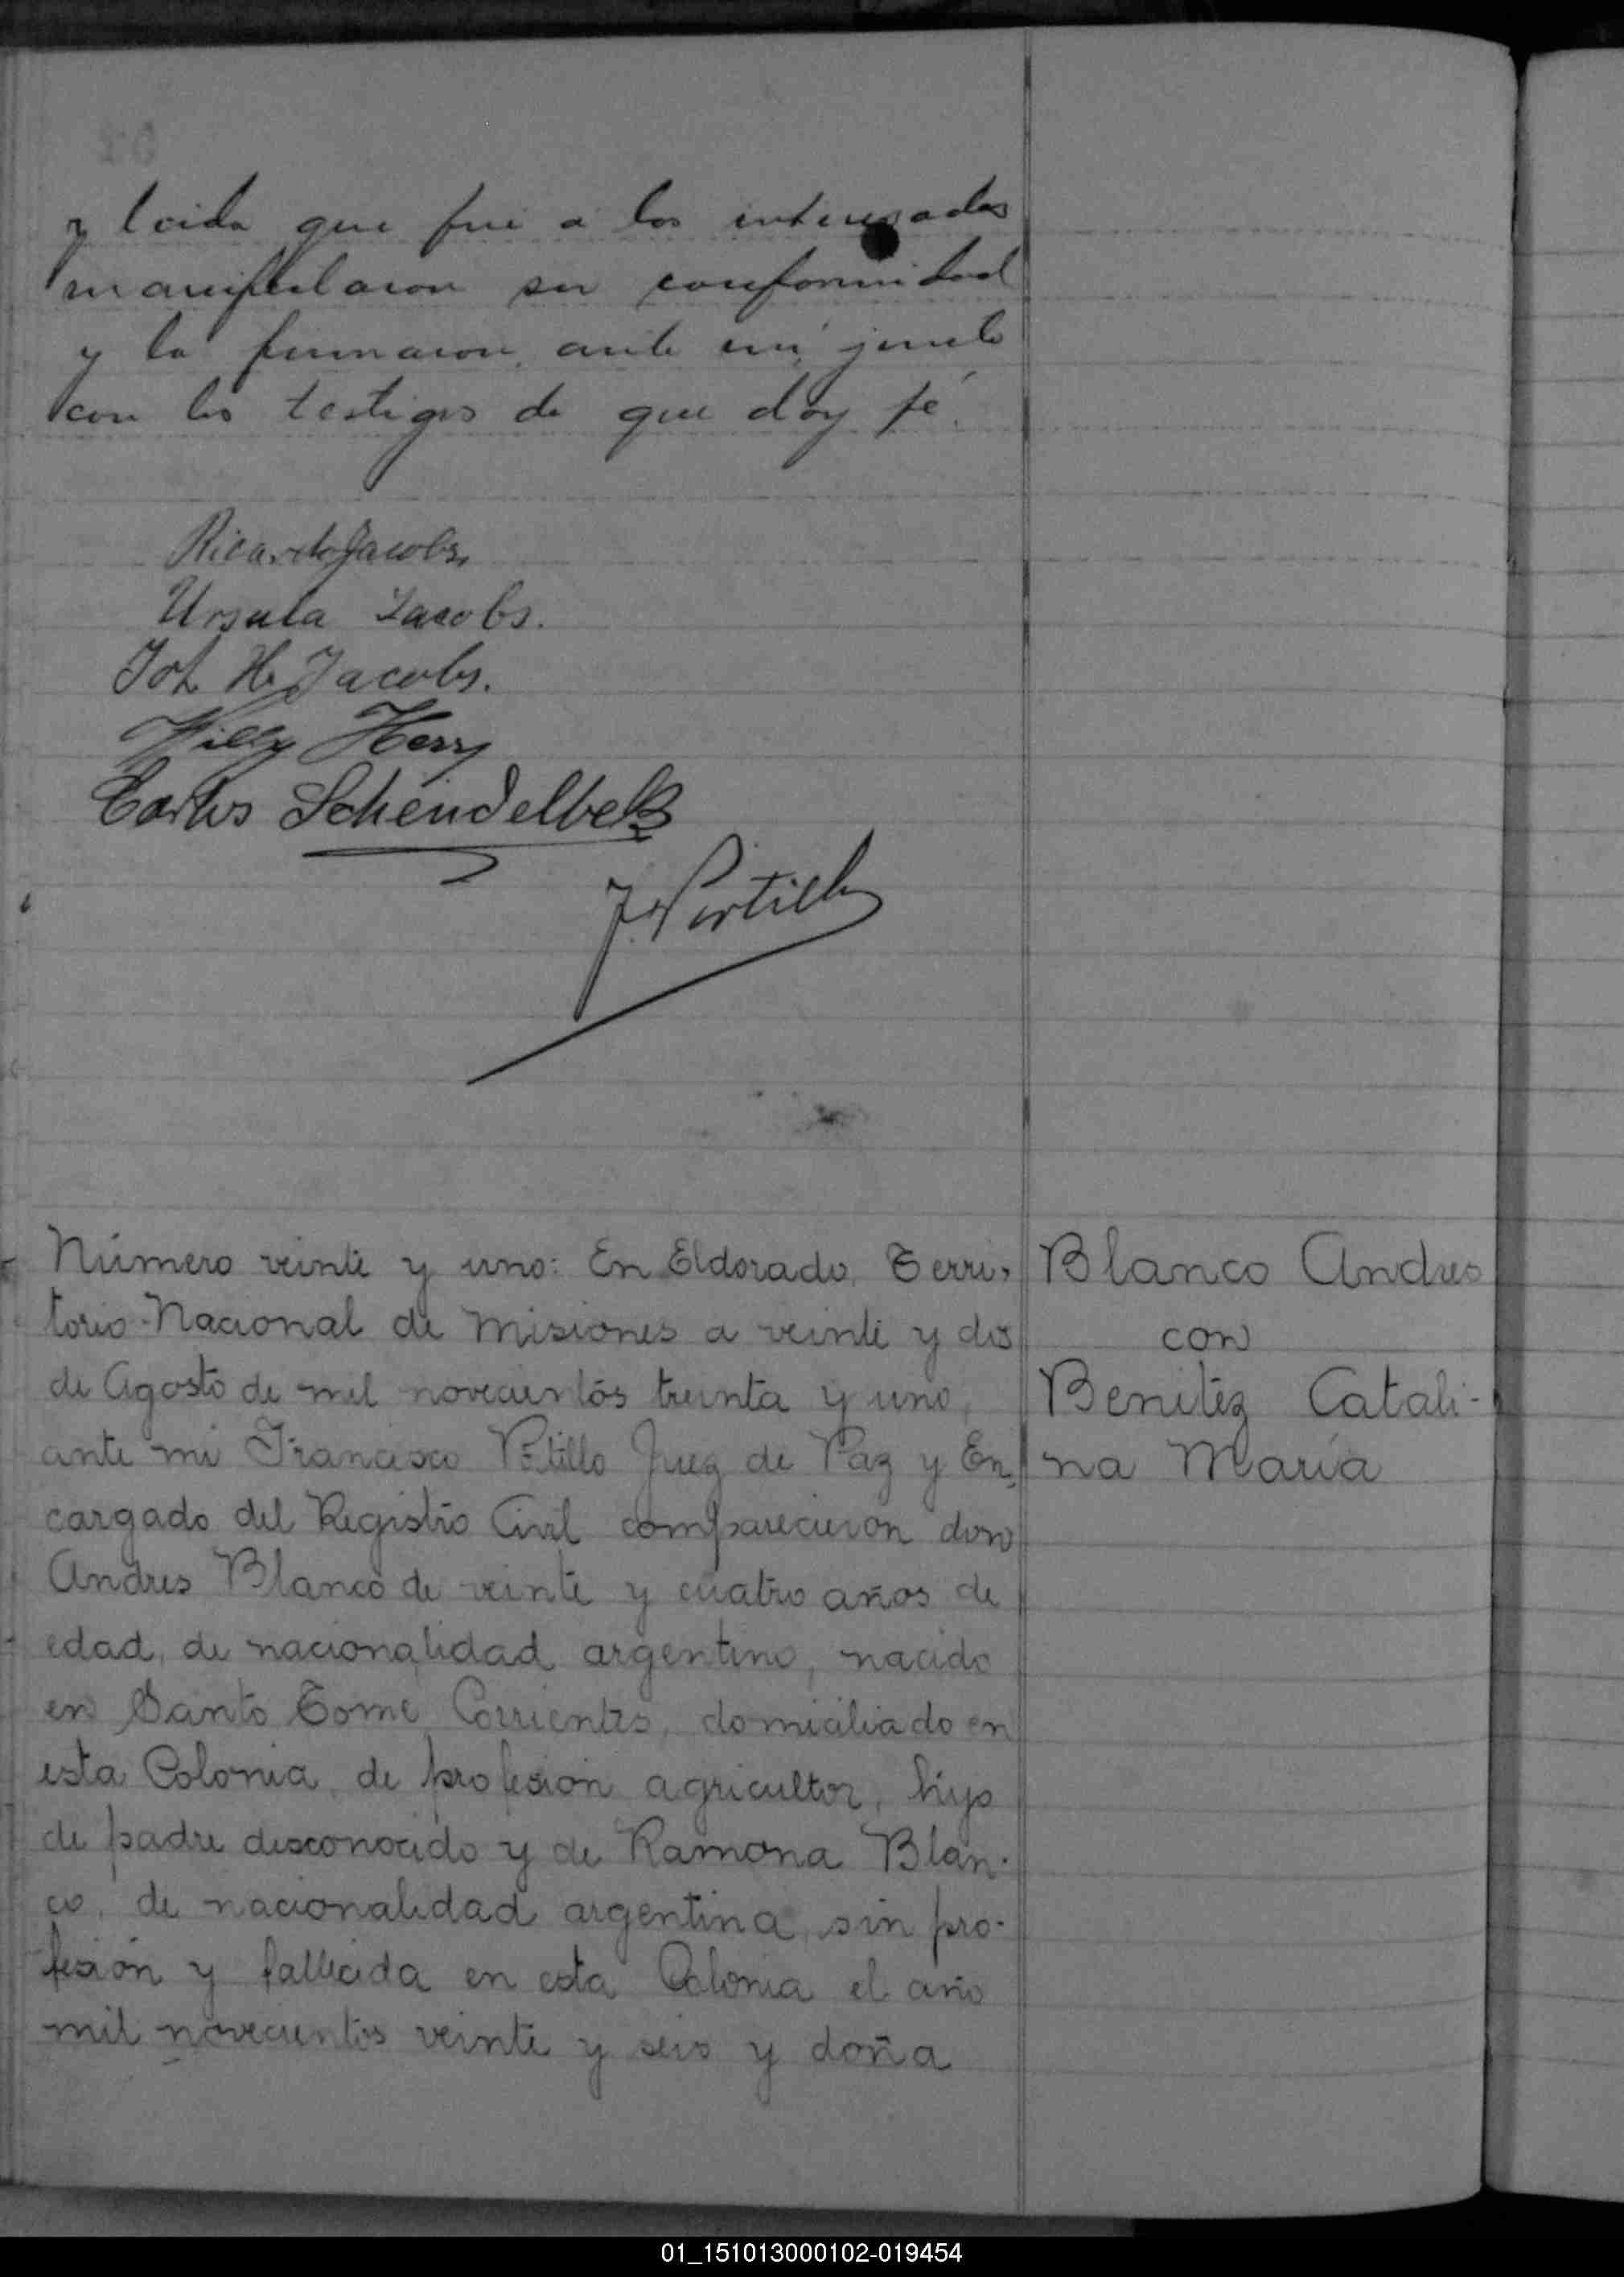 y leida que fué a los interesados
manifestaron su conformidad
y la firmaron ante mi junto
con los testigos de que doy fé.
Ricardo Jacobs
Ursula Jacobs.
Joh. H. Jacobs.
Willy
Carlos Schendelbek
J. Portillo
Número veinte y uno: En Eldorado, Terri-
torio Nacional de Misiones a veinte y dos
de Agosto de mil novecientos treinta y uno,
ante mi Francisco Potillo Juez de Paz y En-
cargado del Registro Civil comparecieron don
Andres Blanco de veinte y cuatro años de
edad, de nacionalidad argentino, nacido
en Santo Tomé Corrientes, domiciliado en
esta Colonia, de profesion agricultor, hijo
de padre desconocido y de Ramona Blan-
co, de nacionalidad argentina, sin pro-
fesión y fallecida en esta Colonia el año
mil novecientos veinte y seis y doña
Blanco Andres
con
Benitez Catali-
na María
01_151013000102-019454